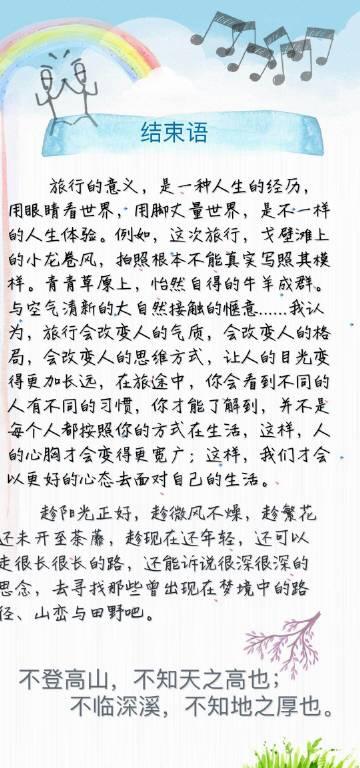 结束语
旅行的意义，是一种人生的经历，
用眼睛看世界，用脚丈量世界，是不一样
的人生体验。例如，这次旅行，戈壁滩上
的小龙卷风，拍照根本不能真实写照其模
样。青青草原上，怡然自得的牛羊成群。
与空气清新的大自然接触的惬意......我认
为，旅行会改变人的气质，会改变人的格
局，会改变人的思维方式，让人的目光变
得更加长远，在旅途中，你会看到不同的
人有不同的习惯，你才能了解到，并不是
每个人都按照你的方式在生活，这样，人
的心胸才会变得更宽广；这样，我们才会
以更好的心态去面对自己的生活。
趁阳光正好，趁微风不燥，趁繁花
还未开至荼蘼，趁现在还年轻，还可以
走很长很长的路，还能诉说很深很深的
思念，去寻找那些曾出现在梦境中的路
径、山峦与田野吧。
不登高山，不知天之高也；
不临深溪，不知地之厚也。